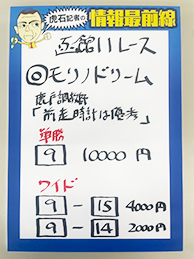 虎石記者の
情報最前線
函館11レース
◎モリノドリーム
虎戸調教師
「前走時計は優秀」
単勝
9 10000円
ワイド
9-15 4000円
9-14 2000円